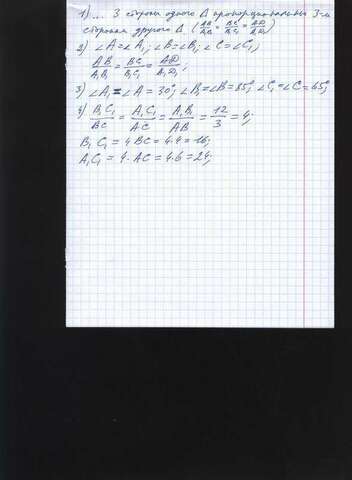 1) ... 3 стороны одного Δ пропорциональны 3-м
сторонам другого Δ (AB/A₁B₁ = BC/B₁C₁ = AD/A₁D₁)
2) ∠A = ∠A₁; ∠B = ∠B₁; ∠C = ∠C₁;
AB/A₁B₁ = BC/B₁C₁ = AD/A₁D₁;
3) ∠A₁ = ∠A = 30°; ∠B₁ = ∠B = 85°; ∠C₁ = ∠C = 65°;
4) B₁C₁/BC = A₁C₁/AC = A₁B₁/AB = 12/3 = 4;
B₁C₁ = 4BC = 4·4 = 16;
A₁C₁ = 4·AC = 4·6 = 24;